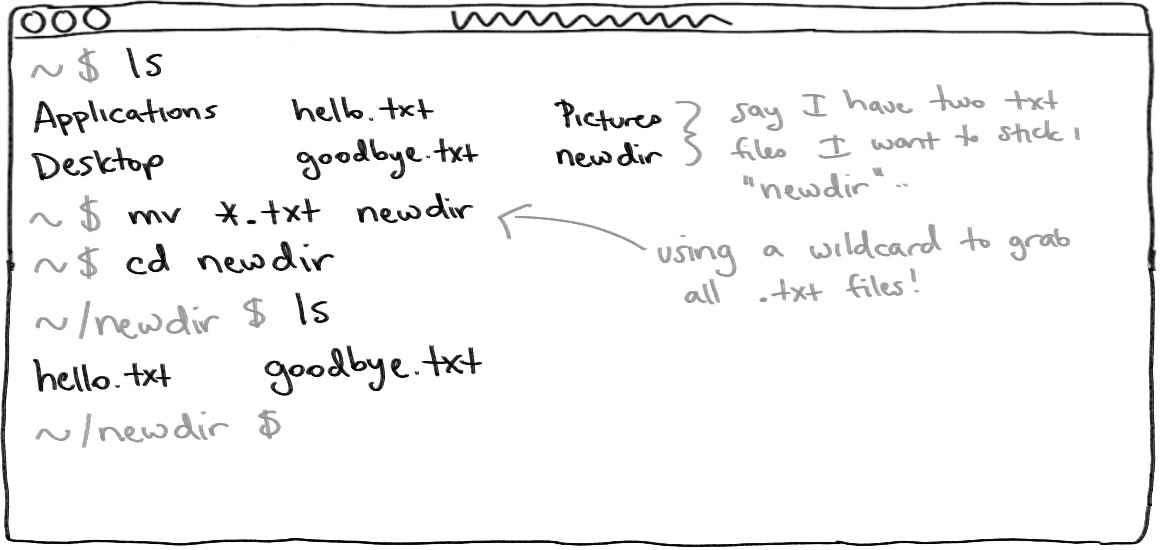 ~ $ ls
Applications hello.txt Pictures
Desktop goodbye.txt newdir
say I have two txt
files I want to stick
"newdir"..
~ $ mv *.txt newdir
~ $ cd newdir
using a wildcard to grab
all .txt files!
~/newdir $ ls
hello.txt goodbye.txt
~/newdir $